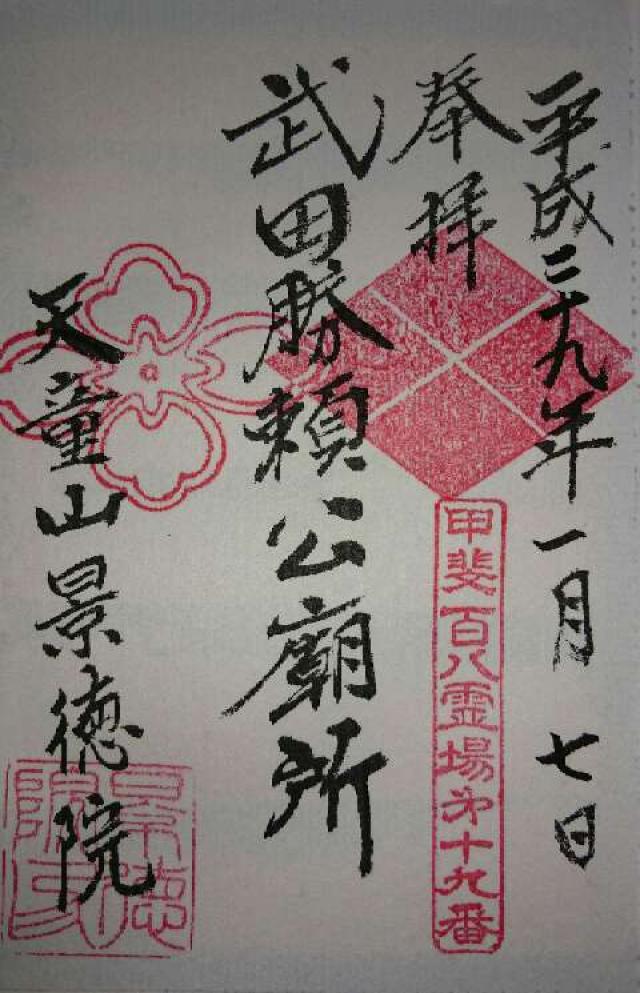 平成三十九年一月七日
奉拝
甲斐百八霊場第十九番
武田勝頼公廟所
天童山景徳院
景徳院印